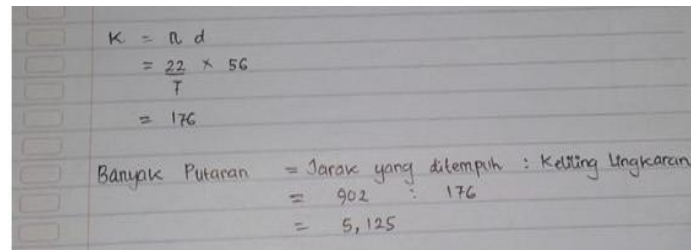 K = π d
= 22/7 × 56
= 176
Banyak Putaran = Jarak yang ditempuh : Keliling lingkaran
= 902 : 176
= 5,125